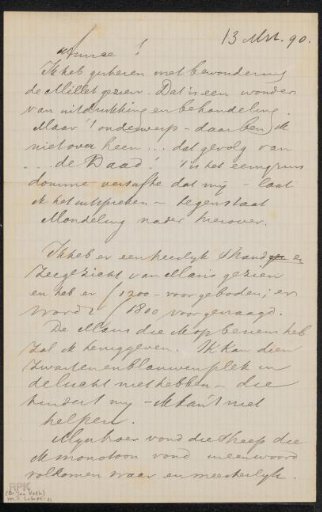 13 Mrt. 90.
Amice!
Ik heb gisteren met bewondering
de Millet gezien. Dat is een wonder
van uitdrukking en behandeling.
Maar! 't onderwerp - daar ben ik
niet over heen ... dat gevolg van
... de Daad! 't is het eenigzins
domme verstufte dat mij - laat
ik het uitspreken - tegenstaat
Mondeling nader hierover.
Ik heb er een heerlijk Strand
Zeegezicht van Maris gezien
en heb er ƒ1200 - voor geboden; er
word ƒ1800 voor gevraagd.
De Maris die ik op heb
zal ik teruggeven. Ik kan dien
zwarten en blauwen plek in
de lucht niet hebben - die
hindert mij - ik kan 't niet
helpen.
Mijnheer vond die Sheep die
ik monotoon vond
volkomen waar en meesterlijk.
RPK